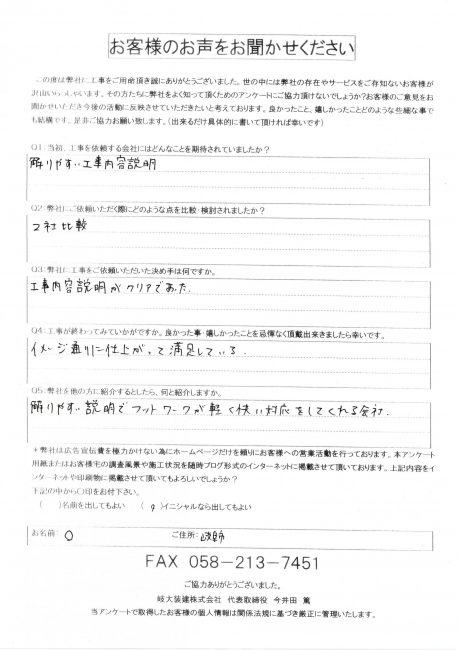 お客様のお声をお聞かせください
この度は弊社に工事をご用命頂き誠にありがとうございました。世の中には弊社の存在やサービスをご存知ないお客様が
沢山いらっしゃいます。その方たちに弊社をよく知って頂くためのアンケートにご協力頂けないでしょうか?お客様のご意見をお
聞かせいただき今後の活動に反映させていただきたいと考えております。良かったこと、嬉しかったことどのような些細な事で
も結構です、是非ご協力お願い致します。(出来るだけ具体的に書いて頂ければ幸いです)
Q1:当初、工事を依頼する会社にはどんなことを期待されていましたか?
解りやすい工事内容説明
Q2:弊社にご依頼いただく際にどのような点を比較・検討されましたか?
2社比較
Q3:弊社に工事をご依頼いただいた決め手は何ですか。
工事内容説明がクリアであった.
Q4:工事が終わってみていかがですか。良かった事・嬉しかったことを忌憚なく頂戴出来ましたら幸いです。
イメージ通りに仕上がって満足している.
Q5:弊社を他の方に紹介するとしたら、何と紹介しますか。
解りやすい説明でフットワークが軽く快い対応をしてくれる会社.
*弊社は広告宣伝費を極力かけない為にホームページだけを頼りにお客様への営業活動を行っております。本アンケート
用紙またはお客様宅の調査風景や施工状況を随時ブログ形式のインターネットに掲載させて頂いております。上記内容をイ
ンターネットや印刷物に掲載させて頂いてもよろしいでしょうか?
下記の中から〇印をお付下さい。
( )名前を出してもよい ( 〇 )イニシャルなら出してもよい
お名前: O ご住所: 岐阜市
FAX 058-213-7451
ご協力ありがとうございました。
岐大装建株式会社 代表取締役 今井田 篤
当アンケートで取得したお客様の個人情報は関係法規に基づき厳正に管理いたします。